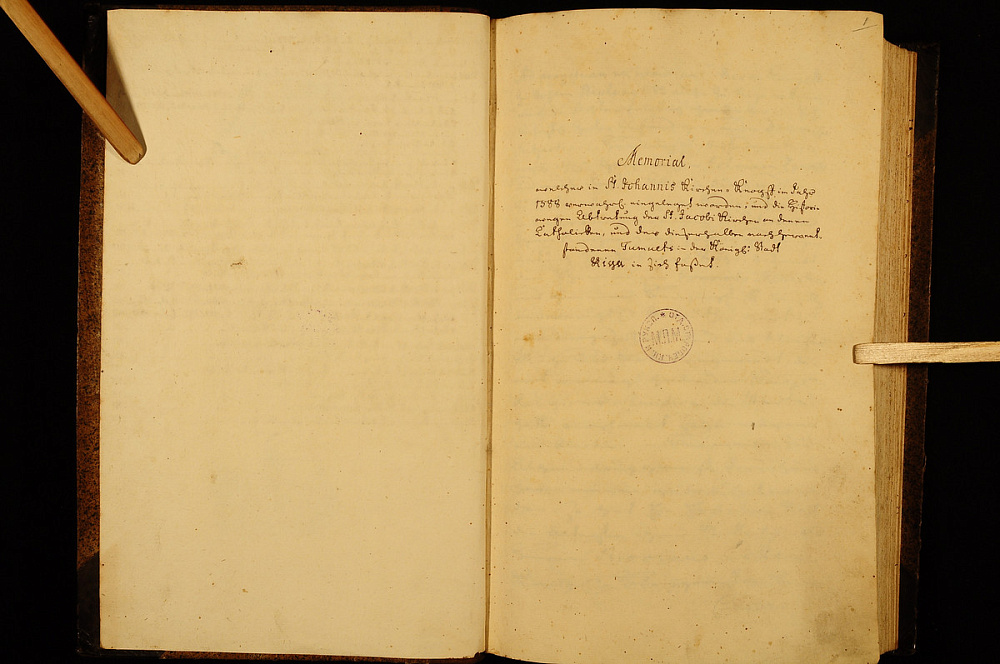 1
Memorial,
welches in St. Johannis Kirchen-Knopff im Jahr
1588 verwahrl. eingeleget worden; und die Histori
wegen Abtretung der St. Jacobi Kirchen an denen
Catholicken, und des dieserhalben nachhero ent-
standenen Tumults in der Königl. Stadt
Riga, in sich faßet.